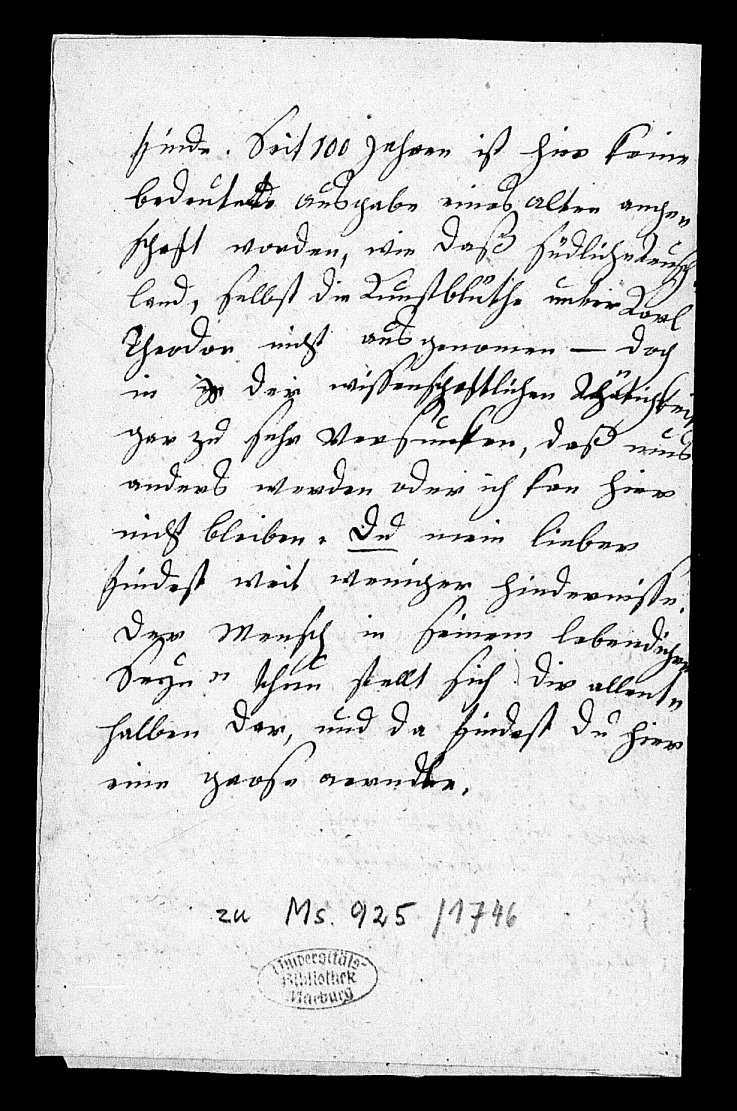 finde. Seit 100 Jahren ist hier keine
bedeutende Ausgabe eines Alten angen
schaft worden, wie daß südliche Deutsch-
land, selbst die Kunstblüthe unter Karl
Theodor nicht ausgenomen — doch
in der wissenschaftlichen Thätichkeit
gar zu sehr versunken, daß mus
anders werden oder ich kan hier
nicht bleiben. Du mein lieber
findest weit weniger Hindernisse.
Der Mensch in seinem lebendigen
Seyn u Thun stellt sich dir allent-
halben dar, und da findest du hier
eine grose aerndte.
zu Ms. 925/1746
Universitäts-
Bibliothek
Marburg